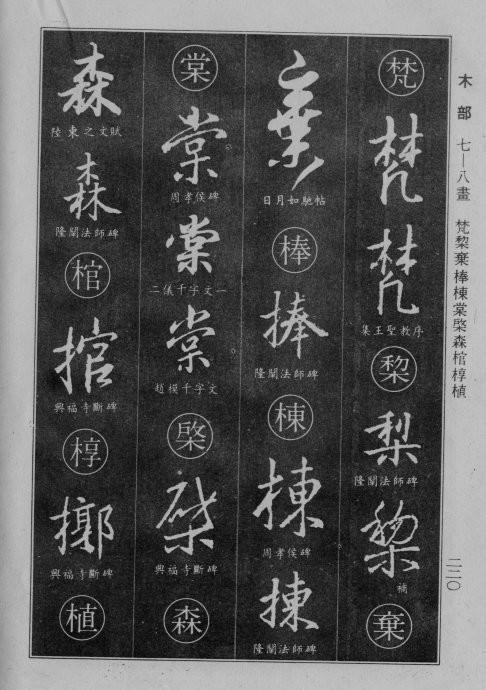 木部 七—八畫 梵棃棄棒棟棠棨森棺椁植
二二〇
梵
梵
梵
集王聖教序
棃
梨
隆闡法師碑
棃
補
棄
棄
日月如馳帖
棒
捧
隆闡法師碑
棟
棟
周孝侯碑
揀
隆闡法師碑
棠
棠
周孝侯碑
棠
二儀千字文一
棠
趙模千字文
棨
棨
興福寺斷碑
森
森
陸柬之文賦
森
隆闡法師碑
棺
棺
興福寺斷碑
椁
槨
興福寺斷碑
植